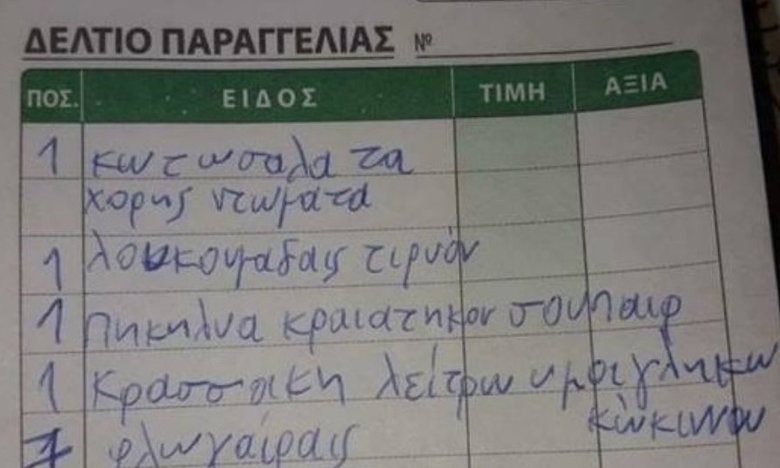 ΔΕΛΤΙΟ ΠΑΡΑΓΓΕΛΙΑΣ №
ΠΟΣ. ΕΙΔΟΣ ΤΙΜΗ ΑΞΙΑ
1 κωτωσαλατα
χορης ντωματα
1 λουκουμαδαις τιρυόν
1 πηκηλυα κραιατηκον σουπαιρ
1 Κρασσακη λείτρω ημφιγληκων
κώκινου
1 φλωγαίραις